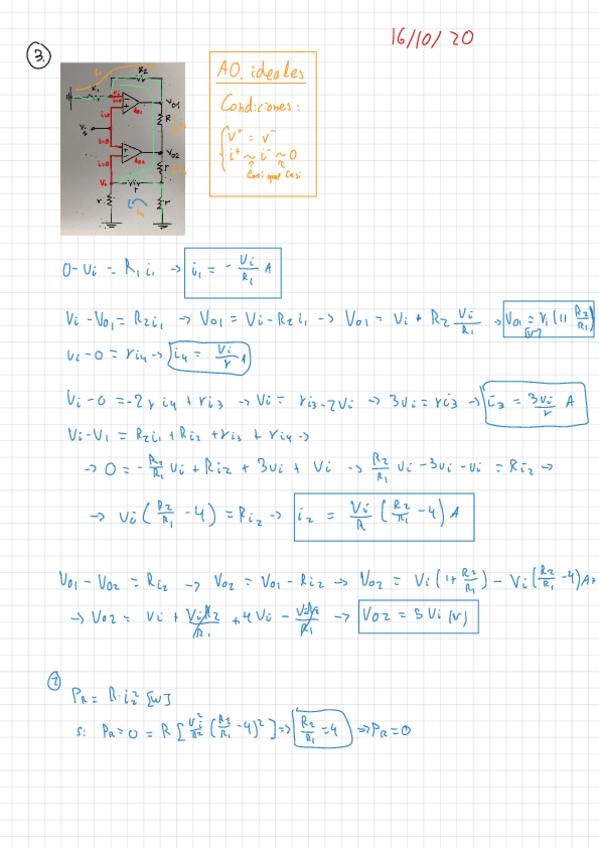 16/10/20
3.
AO. ideales
Condiciones:
V⁺ = V⁻
i⁺ ≈ i⁻ ≈ 0
Casi que Casi
R2
R1
Vo1
R
Vi
Vo2
r
0 - Vi = R1 i1 → i1 = - Vi/R1 A
Vi - Vo1 = R2 i1 → Vo1 = Vi - R2 i1 → Vo1 = Vi + R2 Vi/R1 → Vo1 = Vi (1+ R2/R1) [V]
Vi - 0 = r i4 → i4 = Vi/r A
Vi - 0 = -2 r i4 + r i3 → Vi = r i3 - 2Vi → 3Vi = r i3 → i3 = 3Vi/r A
Vi - Vi = R2 i1 + R i2 + r i3 + r i4 →
→ 0 = - R2/R1 Vi + R i2 + 3Vi + Vi → R2/R1 Vi - 3Vi - Vi = R i2 →
→ Vi (R2/R1 - 4) = R i2 → i2 = Vi/R (R2/R1 - 4) A
Vo1 - Vo2 = R i2 → Vo2 = Vo1 - R i2 → Vo2 = Vi (1 + R2/R1) - Vi (R2/R1 - 4)
→ Vo2 = Vi + Vi R2/R1 + 4Vi - Vi R2/R1 → Vo2 = 5Vi [V]
2
PR = R · i2² [W]
si PR = 0 = R [Vi²/R² (R2/R1 - 4)²] ⇒ R2/R1 = 4 ⇒ PR = 0